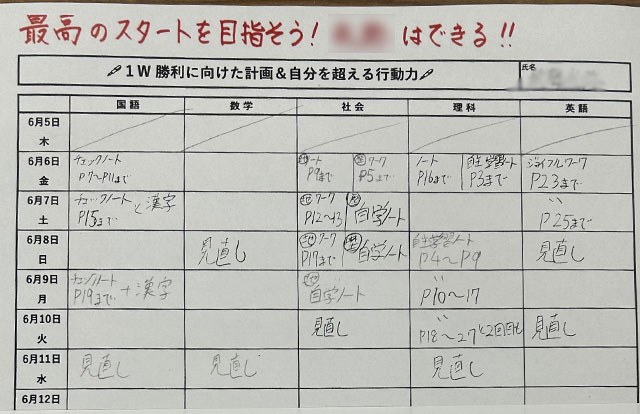 最高のスタートを目指そう! はできる!!
1W 勝利に向けた計画&自分を超える行動力
氏名
国語 数学 社会 理科 英語
6月5日
木
6月6日
金
チェックノート
P7〜P11まで
地ノート
P9まで
歴ワーク
P5まで
ノート
P16まで
自主学習ノート
P3まで
ジョイフルワーク
P23まで
6月7日
土
チェックノート
P15まで と漢字
地ワーク
P12〜13
歴
自学ノート
〃
P25まで
6月8日
日
見直し
地ワーク
P17まで
歴
自学ノート
自主学習ノート
P4〜P9
見直し
6月9日
月
チェックノート
P19まで +漢字
自学ノート
〃
P10〜17
6月10日
火
見直し
〃
P18〜27と2回目も
見直し
6月11日
水
見直し
見直し
見直し
6月12日